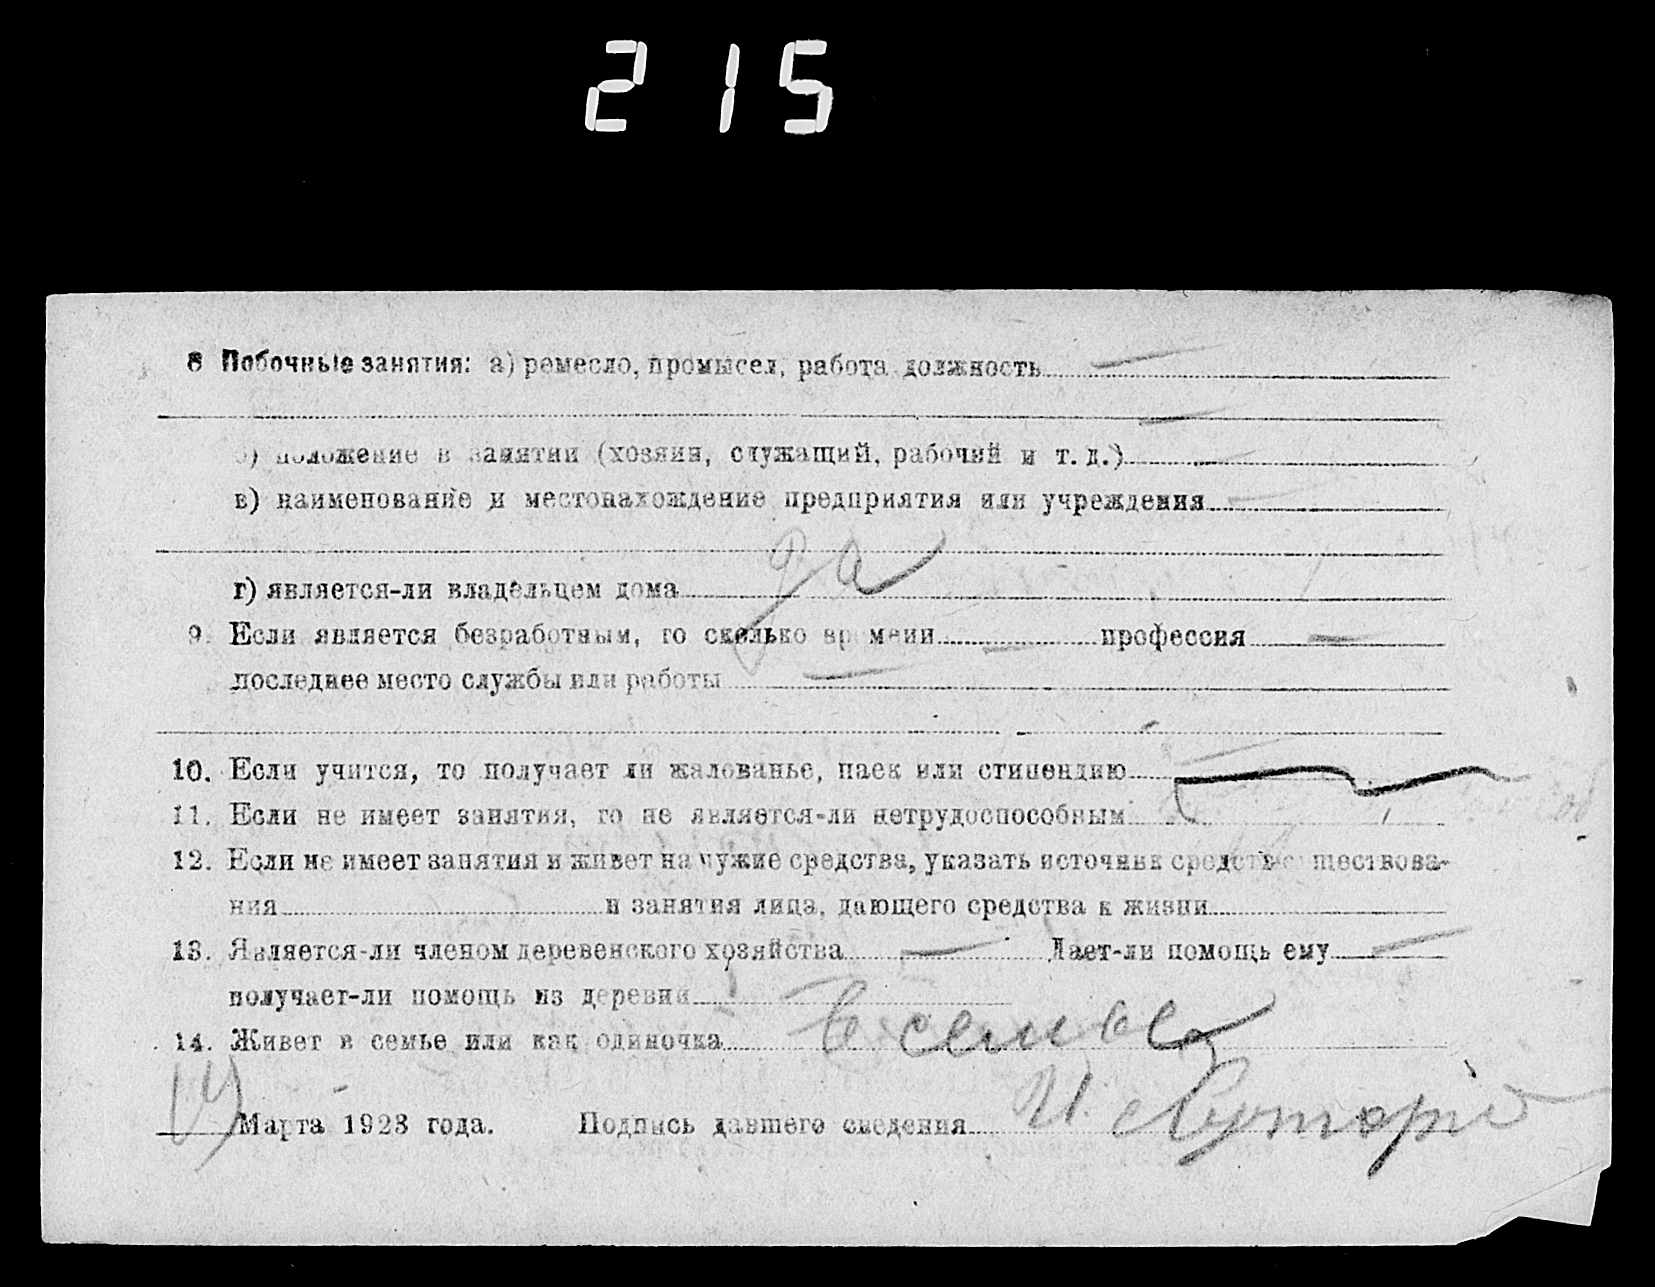 215
8 Побочные занятия: а) ремесло, промысел, работа должность —
—
б) положение в занятии (хозяин, служащий, рабочий и т. д.) —
в) наименование и местонахождение предприятия или учреждения —
г) является-ли владельцем дома да
9. Если является безработным, то сколько времени — профессия —
последнее место службы или работы —
10. Если учится, то получает ли жалованье, паек или стипендию —
11. Если не имеет занятия, то не является-ли нетрудоспособным
12. Если не имеет занятия и живет на чужие средства, указать источник средств существова-
ния и занятия лица, дающего средства к жизни
13. Является-ли членом деревенского хозяйства — Дает-ли помощь ему —
получает-ли помощь из деревни —
14. Живет в семье или как одиночка в семье
14 Марта 1923 года. Подпись давшего сведения И.